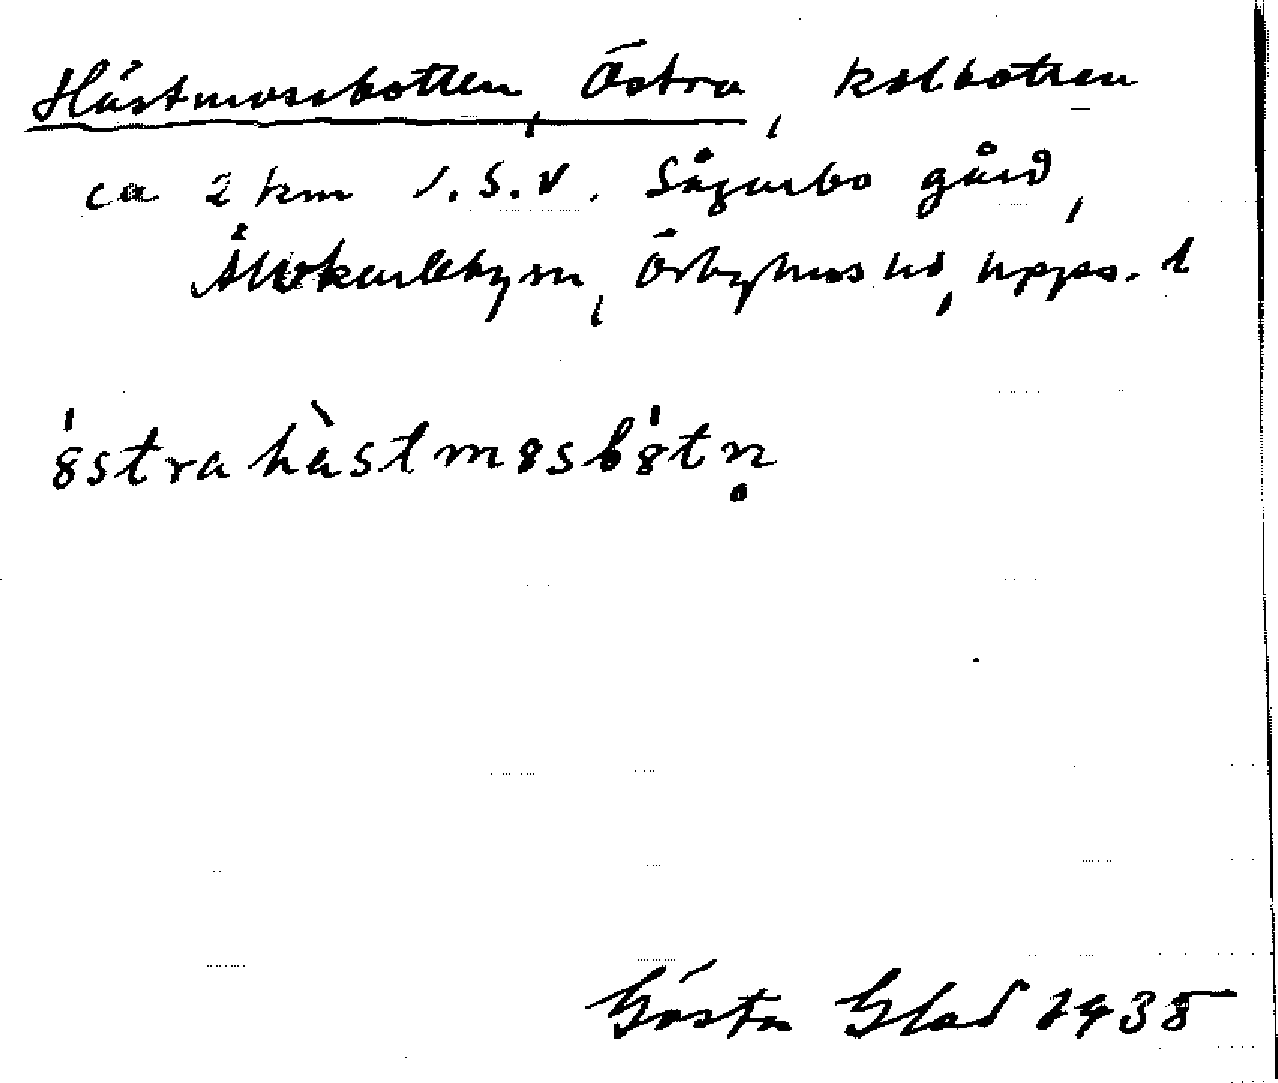 Hästmossbotten, Östra, kolbotten
ca 2 km S.S.V. Sågarbo gård,
Älvkarleby sn, Örbyhus hd, Upps. l
östrahästmosbòtn
Gösta Glad 1935